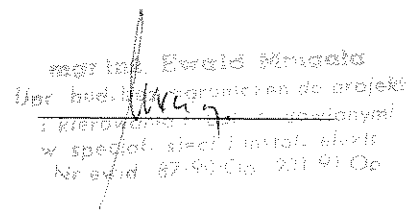 mgr inż. Ewald Mrugała
Upr. bud. bez ograniczen do projekt
i kierowania
w specjal. sieci i instal. elektr
Nr ewid. 87/90/Op 231/91 Op